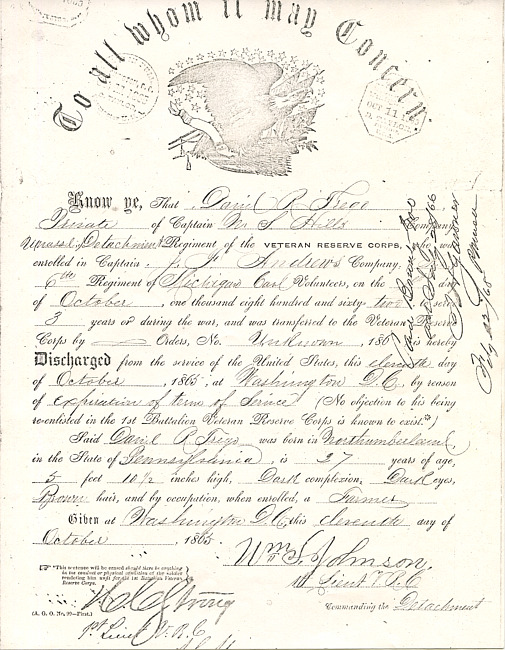 To all whom it may Concern.
OCT 11
Know ye, That Daniel R. Trego
Private of Captain M. S. Hills Company
Detachment Regiment of the VETERAN RESERVE CORPS, who was
enrolled in Captain J. F. Andrews Company,
6th Regiment of Michigan Cavl Volunteers, on the day
of October, one thousand eight hundred and sixty-two to serve
3 years or during the war, and was transferred to the Veteran Reserve
Corps by Orders, No. Unknown, 186 is hereby
Discharged from the service of the United States, this eleventh day
of October, 1865, at Washington D.C., by reason
of expiration of term of service (No objection to his being
re-enlisted in the 1st Battalion Veteran Reserve Corps is known to exist.*)
Said Daniel R. Trego was born in Northumberland,
in the State of Pennsylvania, is 27 years of age,
5 feet 10 1/2 inches high, Dark complexion, Dark eyes,
Brown hair, and by occupation, when enrolled, a Farmer
Given at Washington D.C. this eleventh day of
October, 1865
Wm S. Johnson.
1st Lieut V.R.C
Commanding the Detachment
*This sentence will be erased should there be anything
in the conduct or physical condition of the soldier
rendering him unfit for the 1st Battalion Veteran
Reserve Corps.
(A. G. O. No. 99—First.)
Strong
1st Lieut V.R.C
Paid Bounty